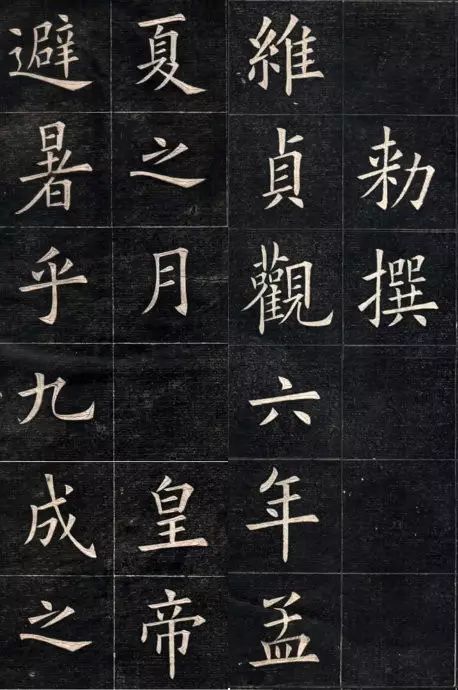 勑撰
維貞觀六年孟
夏之月皇帝
避暑乎九成之